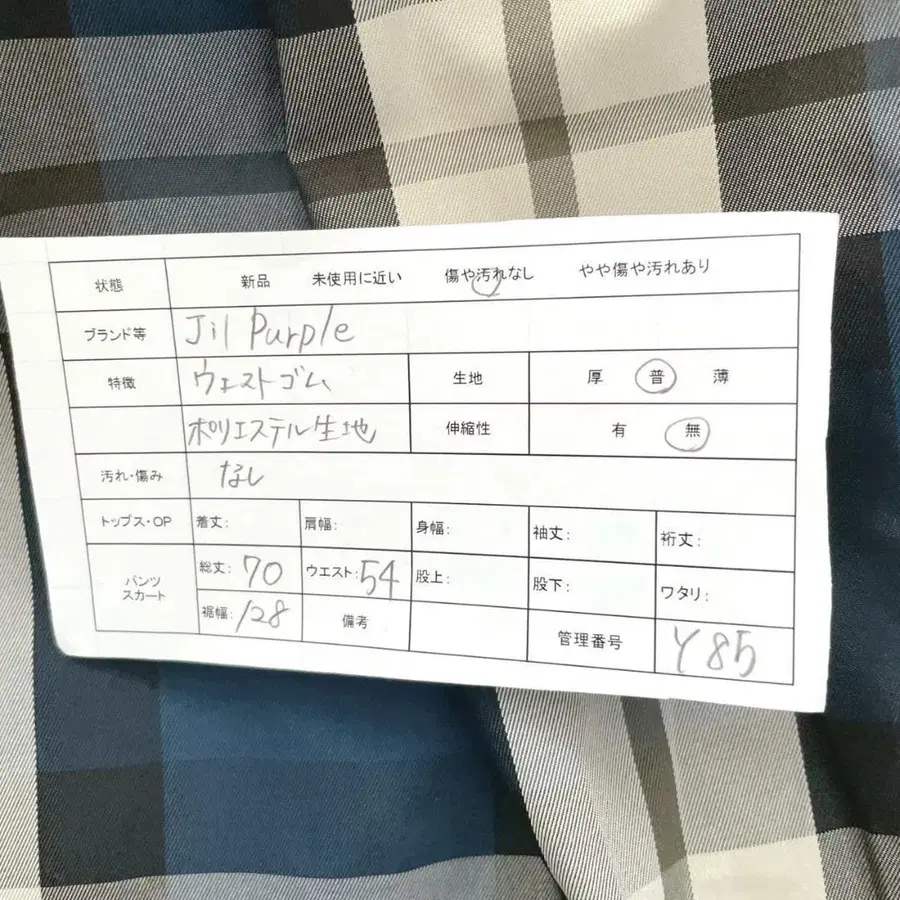 状態 新品 未使用に近い 傷や汚れなし やや傷や汚れあり
ブランド等 Jil Purple
特徴 ウエストゴム 生地 厚 普 薄
ポリエステル生地 伸縮性 有 無
汚れ・傷み なし
トップス・OP 着丈: 肩幅: 身幅: 袖丈: 裄丈:
パンツ
スカート
総丈: 70 ウエスト: 54 股上: 股下: ワタリ:
裾幅: 128 備考 管理番号 Y85